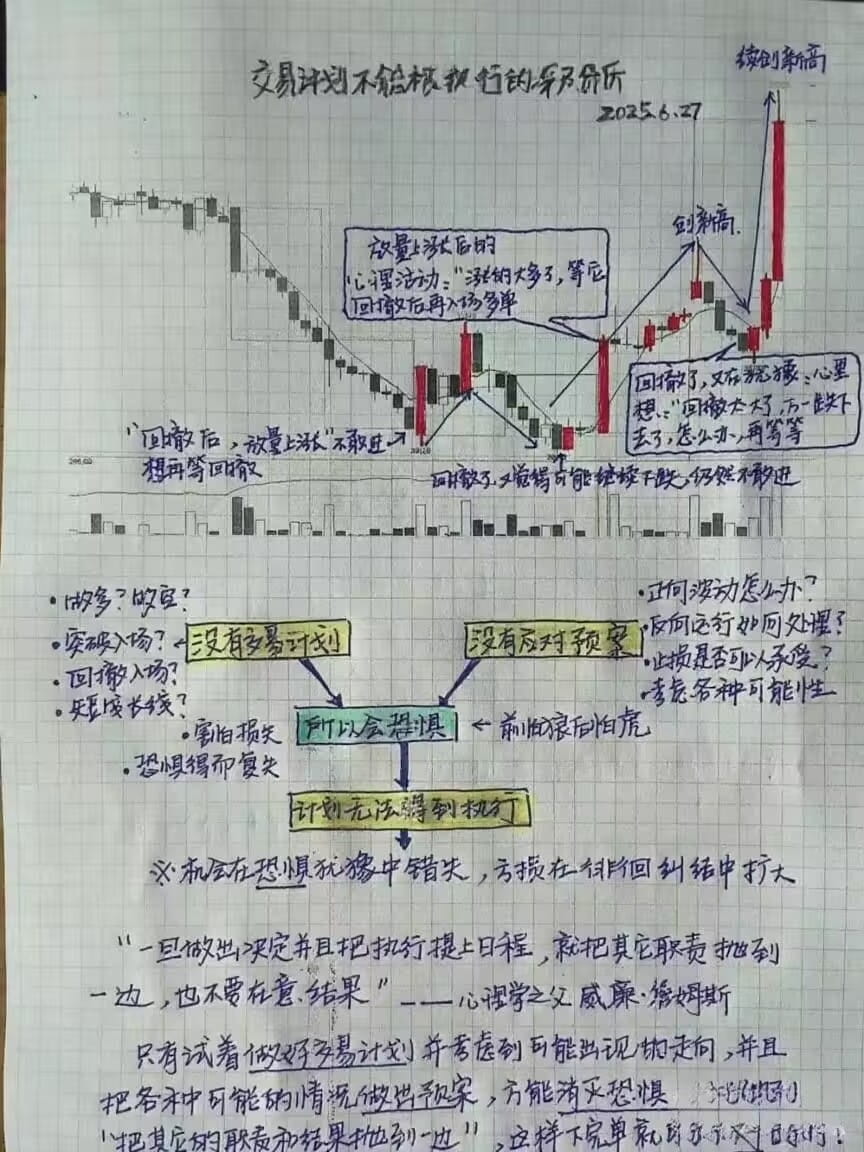 续创新高
交易计划不能被执行的深层分析
2025.6.27
创新高
放量上涨后的
心理活动："涨的太多了，等它
回撤后再入场多单
回撤了，又在犹豫：心里
想："回撤太大了，万一跌下
去了，怎么办，再等等
"回撤后，放量上涨"不敢进
想再等回撤
回撤了，又觉得可能继续下跌，仍然不敢进
·做多？做空？
·突破入场？
·回撤入场？
·短线长线？
没有交易计划
没有应对预案
·正向波动怎么办？
·反向运行如何处理？
·止损是否可以承受？
·考虑各种可能性
·害怕损失
·恐惧得而复失
所以会恐惧
前怕狼后怕虎
计划无法得到执行
※机会在恐惧犹豫中错失，亏损在徘徊纠结中扩大
"一旦做出决定并且把执行提上日程，就把其它职责抛到
一边，也不要在意结果"——心理学之父 威廉·詹姆斯
只有试着做好交易计划并考虑到可能出现的走向，并且
把各种可能的情况做出预案，方能消灭恐惧
"把其它的职责和结果抛到一边"，这样下完单就